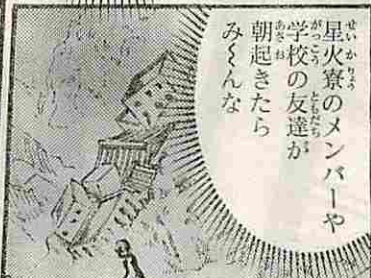 星火寮のメンバーや
学校の友達が
朝起きたら
み〜んな